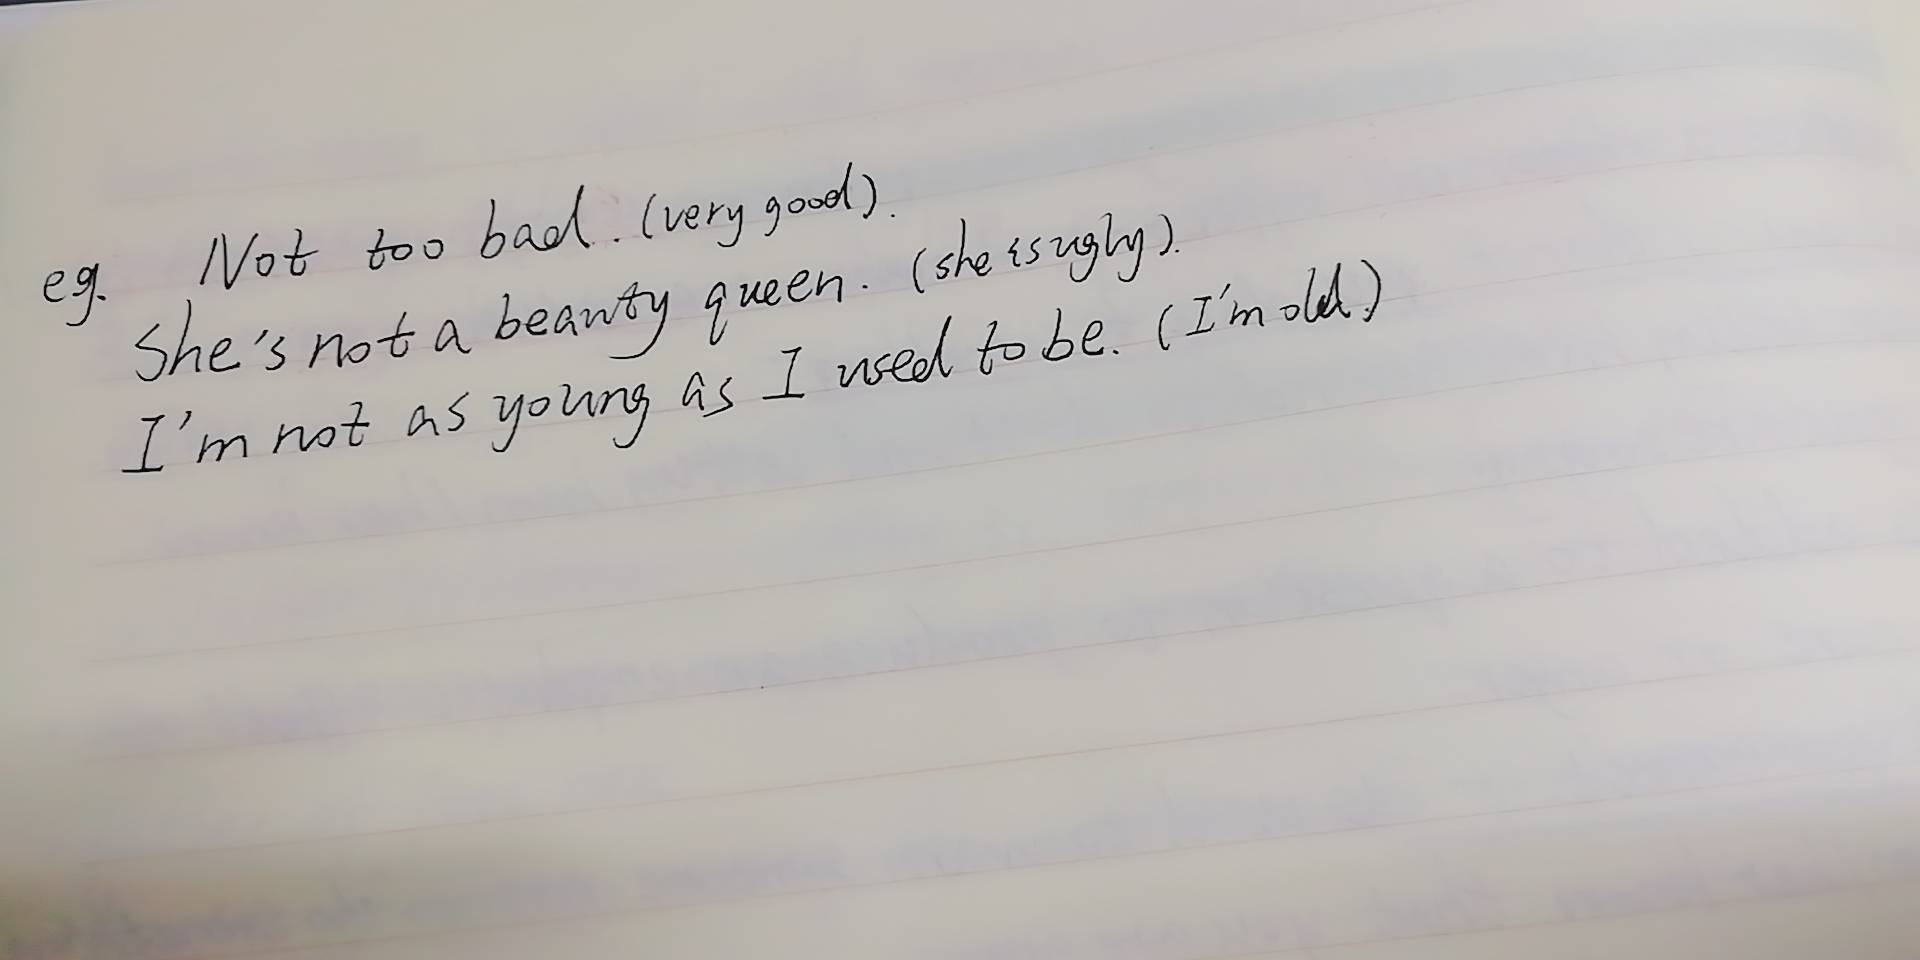 eg. Not too bad. (very good).
She's not a beauty queen. (she is ugly).
I'm not as young as I used to be. (I'm old.)